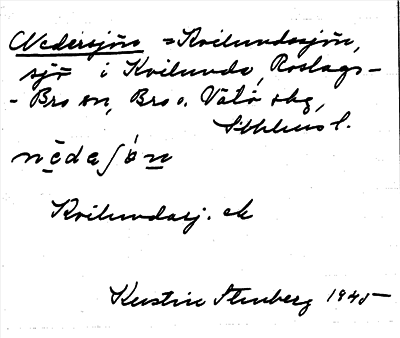 Nedersjön = Kvilundasjön,
sjö i Kvilunda, Roslags-
- Bro sn, Bro o. Vätö skg,
Sthlms l.
nedesjön
Kvilundasj. ek
Kerstin Stenberg 1945